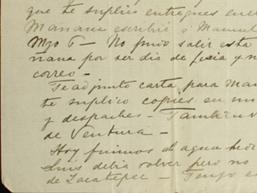 que te suplico entregues
Mañana escribiré á Manuel
Mzo 6 — No pudo salir esta
ñana por ser dia de fiesta y n
correo —
Te adjunto carta para Ma
te suplico copies en un
y despaches — Tambien
de Ventura —
Hoy fuimos de agua
Luis debia volver pero no
de Zacatepec — Tengo